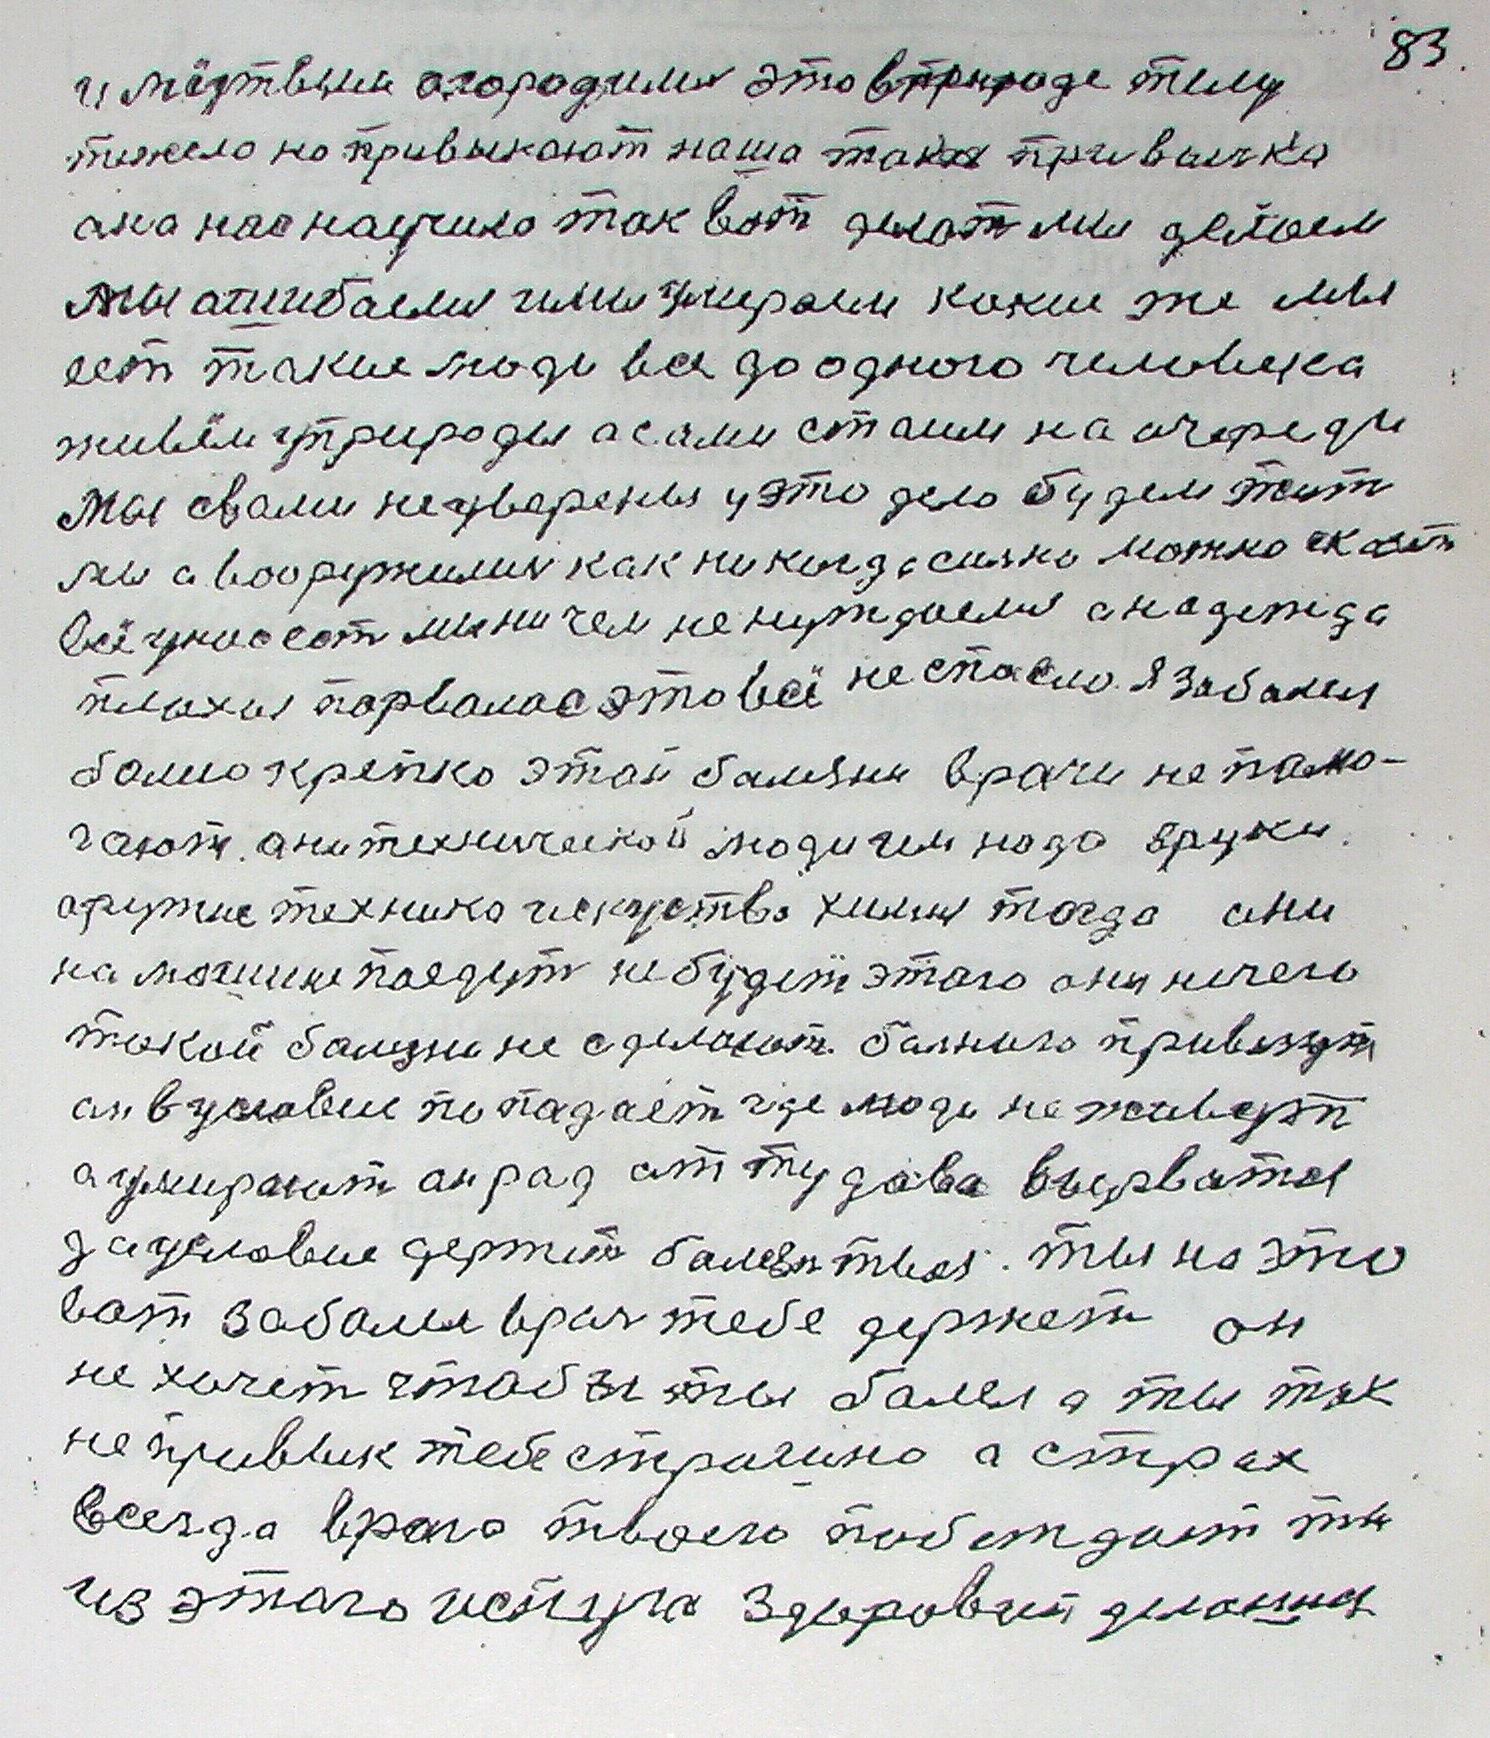 83.
и мёртвым огородился это в природе телу
тяжело но привыкают наша такая привычка
ана нас научила так вот делат мы делаем
мы ашибаемся и мы умираем какие же мы
ест такие люди все до одного человека
живём у природы а сами стаим на очереди
Мы свами не уверены у это дело будем жит
мы а вооружились как никогда сильно можно скозат
всё у нас ест мы ни чем не нуждаемся а надежда
плахая порвалас это всё не спасло. Я заболел
болно крепко этай балезни врачи не памо-
гают. ани технической люди им надо вруки.
аружие техника искуства химия тогда ани
на машине поедут не будет этаго они нечего
такой балезни не сделают. балного привезут
он в условие попадает где люди не живут
а умирают он рад от тудава вырватся
за условие держит балезн твая. ты на это
вот заболел врач тебе держет он
не хочет чтобы ты балел а ты так
не привык тебе страшно а страх
всегда врага твоего побеждает ты
из этаго испуга здоровым делаишся